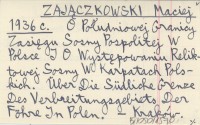 ZAJĄCZKOWSKI Maciej
1936 c. O Południowej Granicy
Zasięgu Sosny Pospolitej W
Polsce I O Występowaniu Relik-
towej Sosny W Karpatach Pols-
kich. Über Die Südliche Grenze
Des Verbreitungsgebiets Der
Föhre In Polen. Kraków.